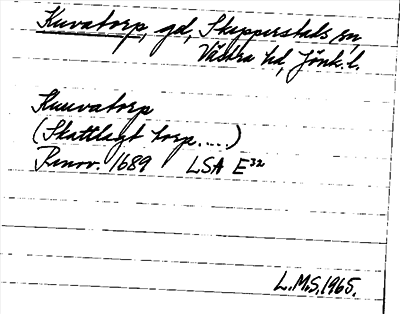 Kuvatorp, gd, Skepperstads sn,
Västra hd, Jönk. l.
Kuuvatorp
(Skattlagt torp....)
Renov. 1689 LSA E³²
L.M.S. 1965.